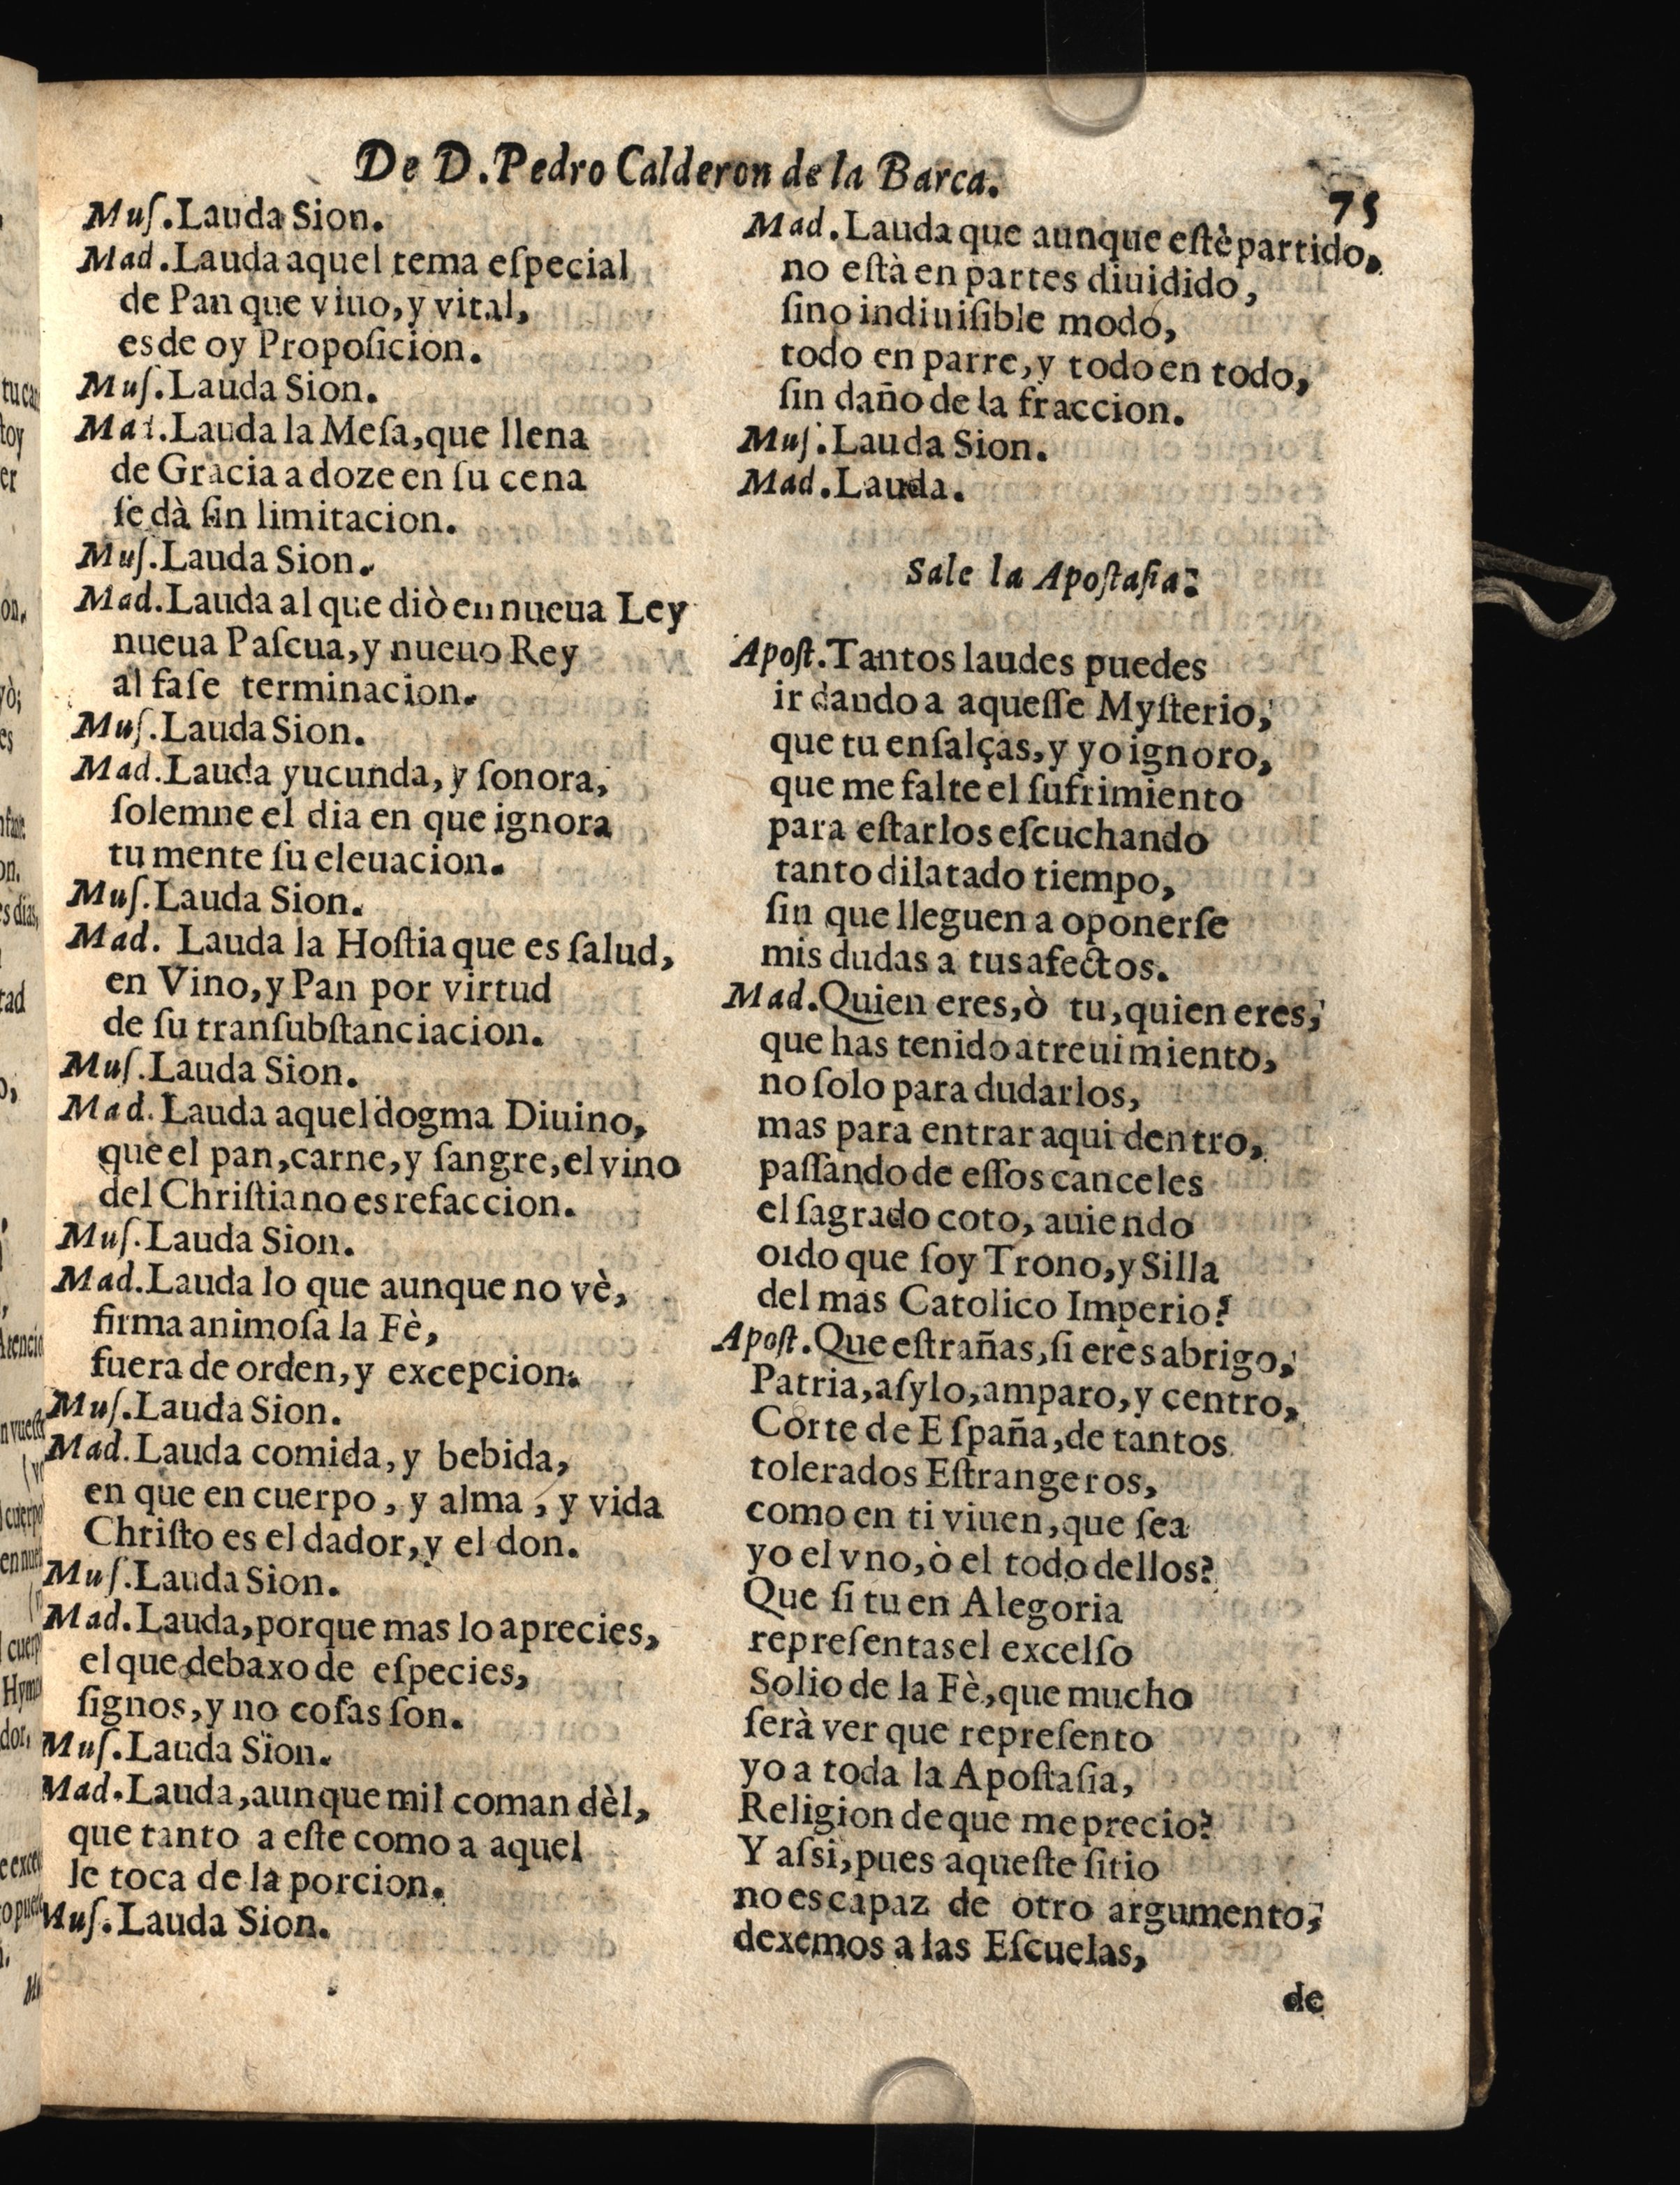 De D. Pedro Calderon de la Barca.
75
Muſ. Lauda Sion.
Mad. Lauda aquel tema eſpecial
de Pan que viuo, y vital,
es de oy Propoſicion.
Muſ. Lauda Sion.
Mad. Lauda la Meſa, que llena
de Gracia a doze en ſu cena
ſe dà ſin limitacion.
Muſ. Lauda Sion.
Mad. Lauda al que diò en nueua Ley
nueua Paſcua, y nueuo Rey
al faſe terminacion.
Muſ. Lauda Sion.
Mad. Lauda yucunda, y ſonora,
ſolemne el dia en que ignora
tu mente ſu eleuacion.
Muſ. Lauda Sion.
Mad. Lauda la Hoſtia que es ſalud,
en Vino, y Pan por virtud
de ſu tranſubſtanciacion.
Muſ. Lauda Sion.
Mad. Lauda aquel dogma Diuino,
que el pan, carne, y ſangre, el vino
del Chriſtiano es refaccion.
Muſ. Lauda Sion.
Mad. Lauda lo que aunque no vè,
firma animoſa la Fè,
fuera de orden, y excepcion.
Muſ. Lauda Sion.
Mad. Lauda comida, y bebida,
en que en cuerpo, y alma, y vida
Chriſto es el dador, y el don.
Muſ. Lauda Sion.
Mad. Lauda, porque mas lo aprecies,
el que debaxo de eſpecies,
ſignos, y no coſas ſon.
Muſ. Lauda Sion.
Mad. Lauda, aunque mil coman dèl,
que tanto a eſte como a aquel
le toca de la porcion.
Muſ. Lauda Sion.
Mad. Lauda que aunque eſtè partido,
no eſtà en partes diuidido,
ſino indiuiſible modo,
todo en parre, y todo en todo,
ſin daño de la fraccion.
Muſ. Lauda Sion.
Mad. Lauda.
Sale la Apoſtaſia:
Apoſt. Tantos laudes puedes
ir dando a aqueſſe Myſterio,
que tu enſalças, y yo ignoro,
que me falte el ſufrimiento
para eſtarlos eſcuchando
tanto dilatado tiempo,
ſin que lleguen a oponerſe
mis dudas a tus afectos.
Mad. Quien eres, ò tu, quien eres,
que has tenido atreuimiento,
no ſolo para dudarlos,
mas para entrar aqui dentro,
paſſando de eſſos canceles
el ſagrado coto, auiendo
oido que ſoy Trono, y Silla
del mas Catolico Imperio?
Apoſt. Que eſtrañas, ſi eres abrigo,
Patria, aſylo, amparo, y centro,
Corte de Eſpaña, de tantos
tolerados Eſtrangeros,
como en ti viuen, que ſea
yo el vno, ò el todo dellos?
Que ſi tu en Alegoria
repreſentas el excelſo
Solio de la Fè, que mucho
ſerà ver que repreſento
yo a toda la Apoſtaſia,
Religion de que me precio?
Y aſsi, pues aqueſte ſitio
no es capaz de otro argumento,
dexemos a las Eſcuelas,
de